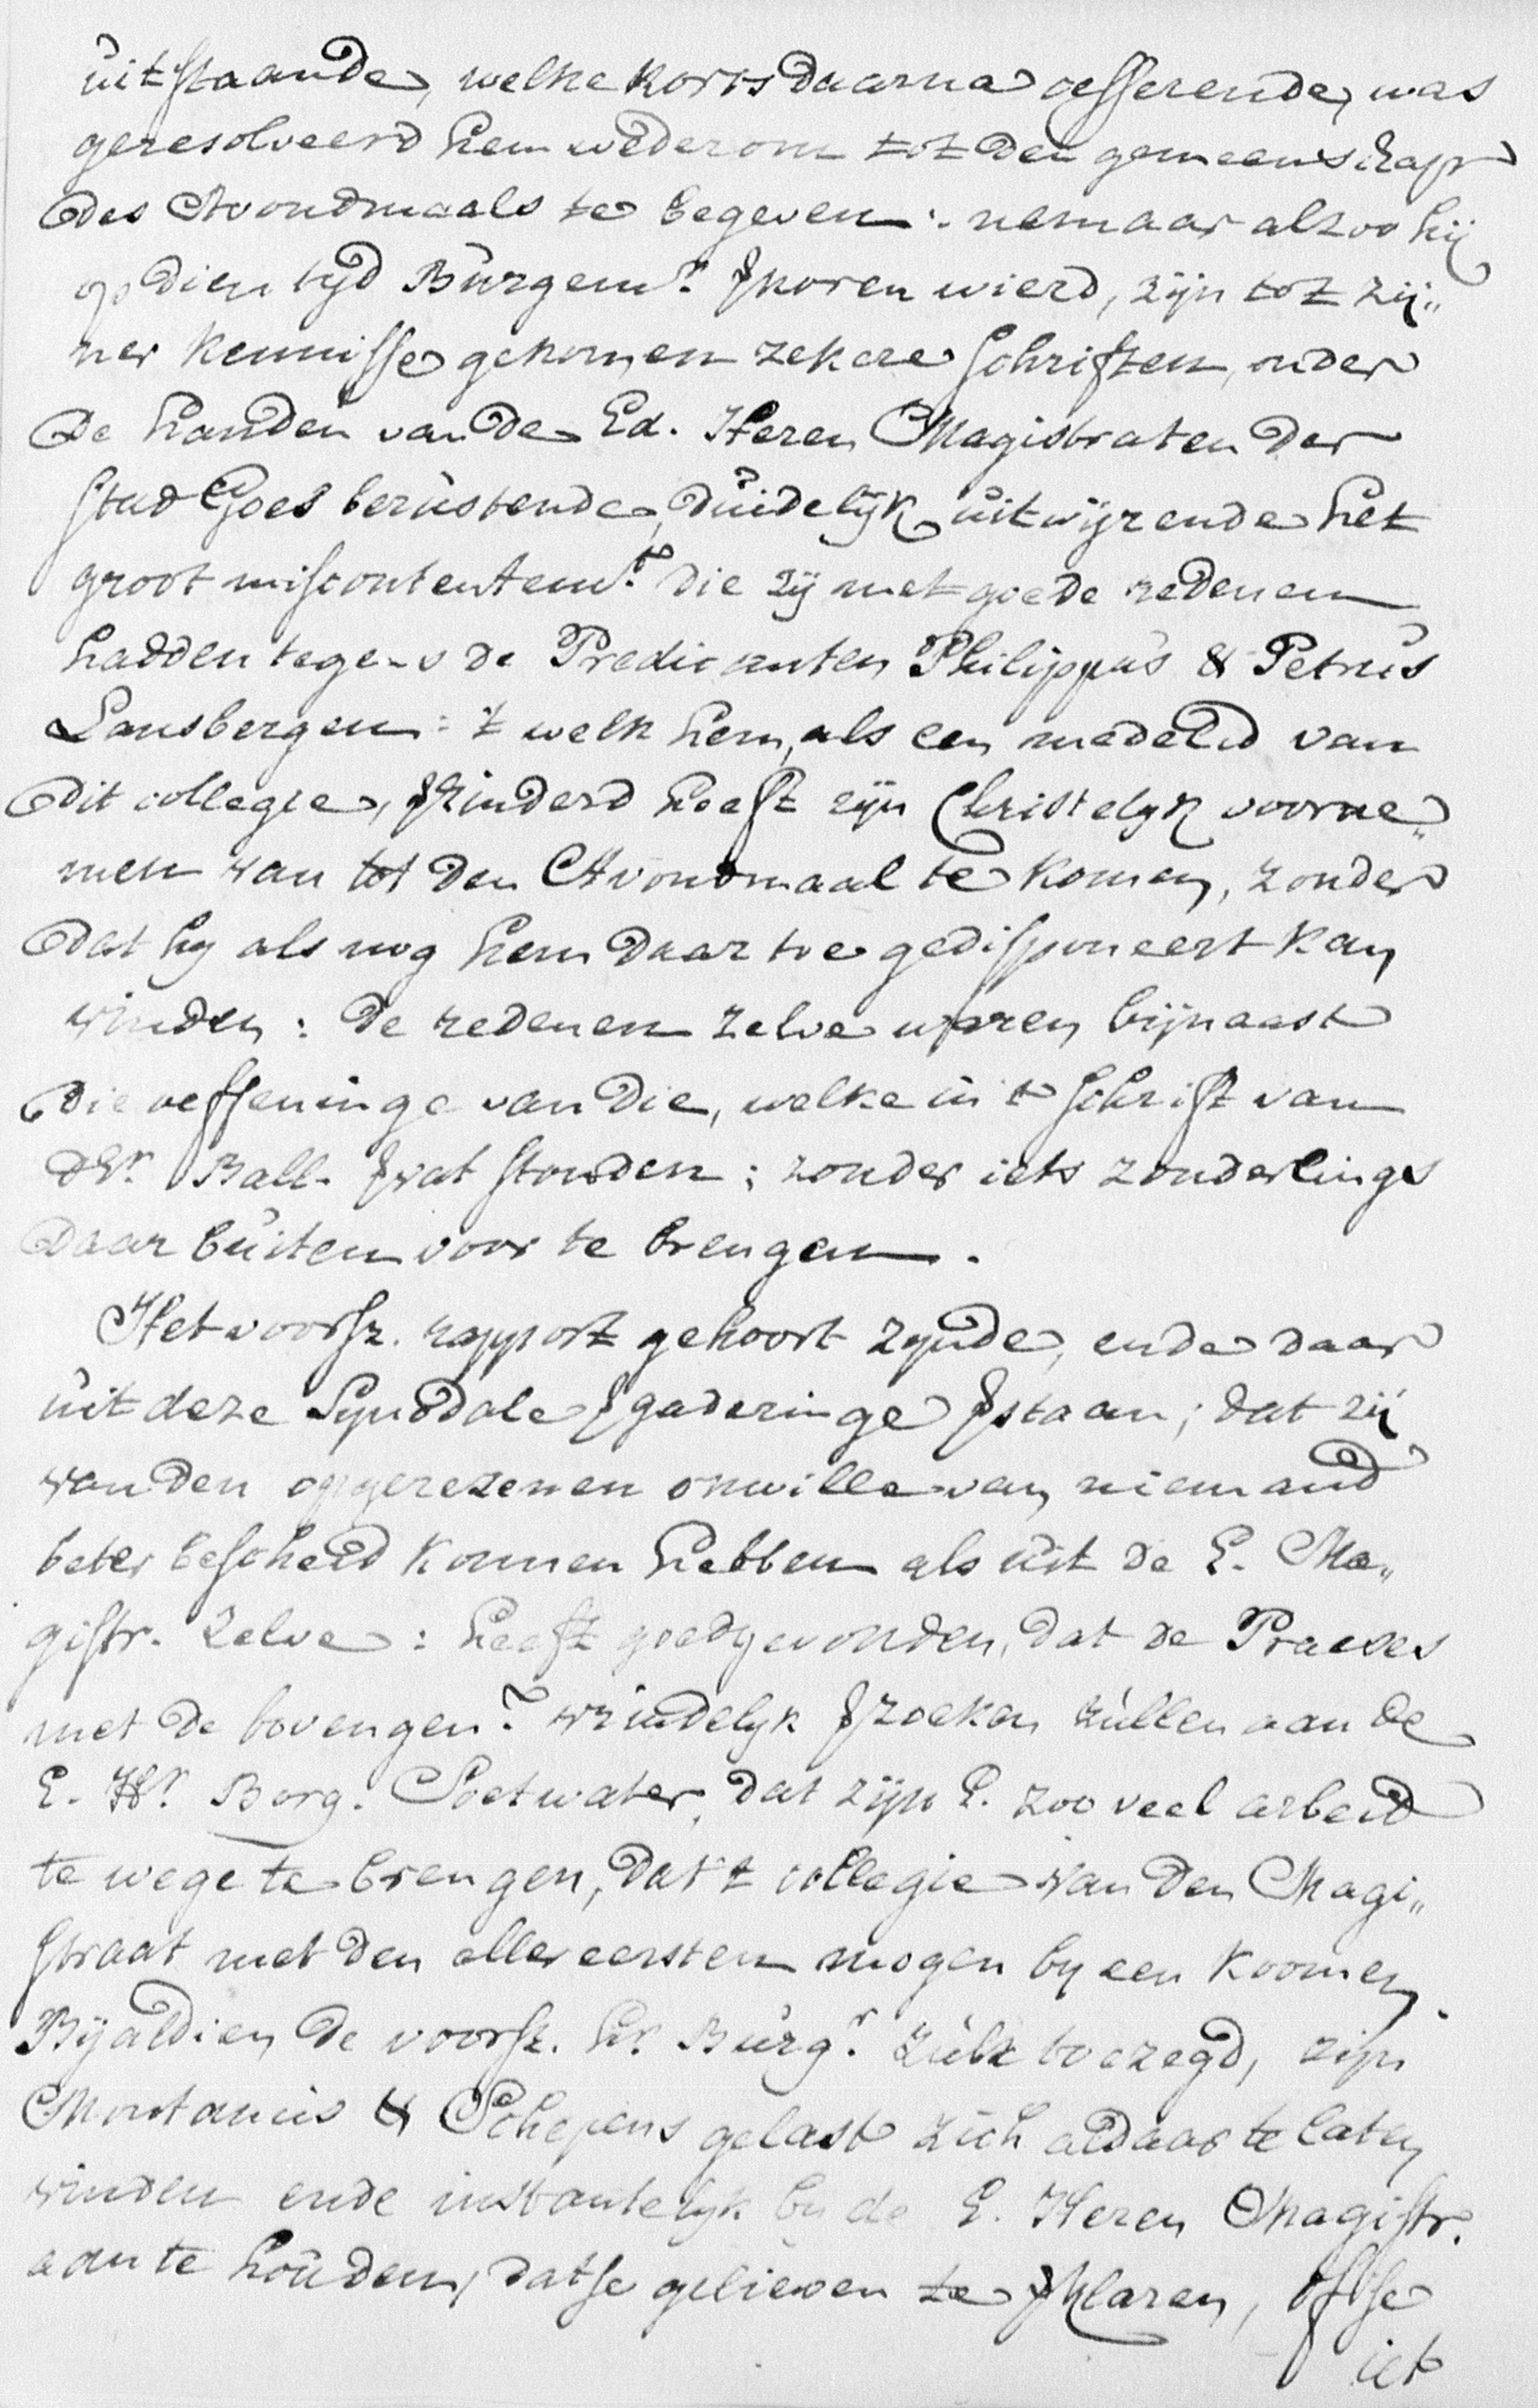 uitstaande, welke korts daarna oeffenende, was
geresolveerd hem wederom tot den gemeenschap
des Avondmaals te begeven: nemaar alzoo hij
op dien tyd Burgemr. verkoren wierd, zijn tot zij„
ner kennisse gekomen zekere schriften, onder
de handen van de Ed. Heren Magistraten der
stad Goes berustende, duidelijk uitwijzende het
groot miscontentemt. die zij met goede redenen
hadden tegens de Predicanten Philippus & Petrus
Lansbergen: 't welk hem, als een medelid van
dit collegie, verhinderd heeft zijn Christelyk voorne„
men van tot den Avondmaal te komen, zonder
dat hy als nog hem daar toe gedisponeert kan
vinden: de redenen zelve waren bijnaast
die oeffeninge van die, welke in 't schrift van
dHr. Ball. vervat stonden; zonder iets zonderlings
daar buiten voor te brengen.
Het voorsz. rapport gehoort zynde, ende daar
uit deze Synodale vergaderinge verstaan; dat zij
van den opgerezenen onwille van niemand
beter bescheid konnen hebben als uit de E. Ma„
gistr. zelve: heeft goedgevonden, dat de Praeses
met de bovengen. vrindelyk verzoeken zullen aan de
E. Hr. Borg. Soetwater, dat zijn E. zoo veel arbeid
te wege te brengen, dat 't collegie van den Magi„
straat met den aller eersten mogen by een koomen.
Byaldien de voorsz. Hr. Burgr. zulx toezegd, zijn
Montanus & Schepens gelast zich aldaar te laten
vinden ende instantelyk by de E. Heren Magistr.
aan te houden, datse gelieven te verklaren, ofse
iet